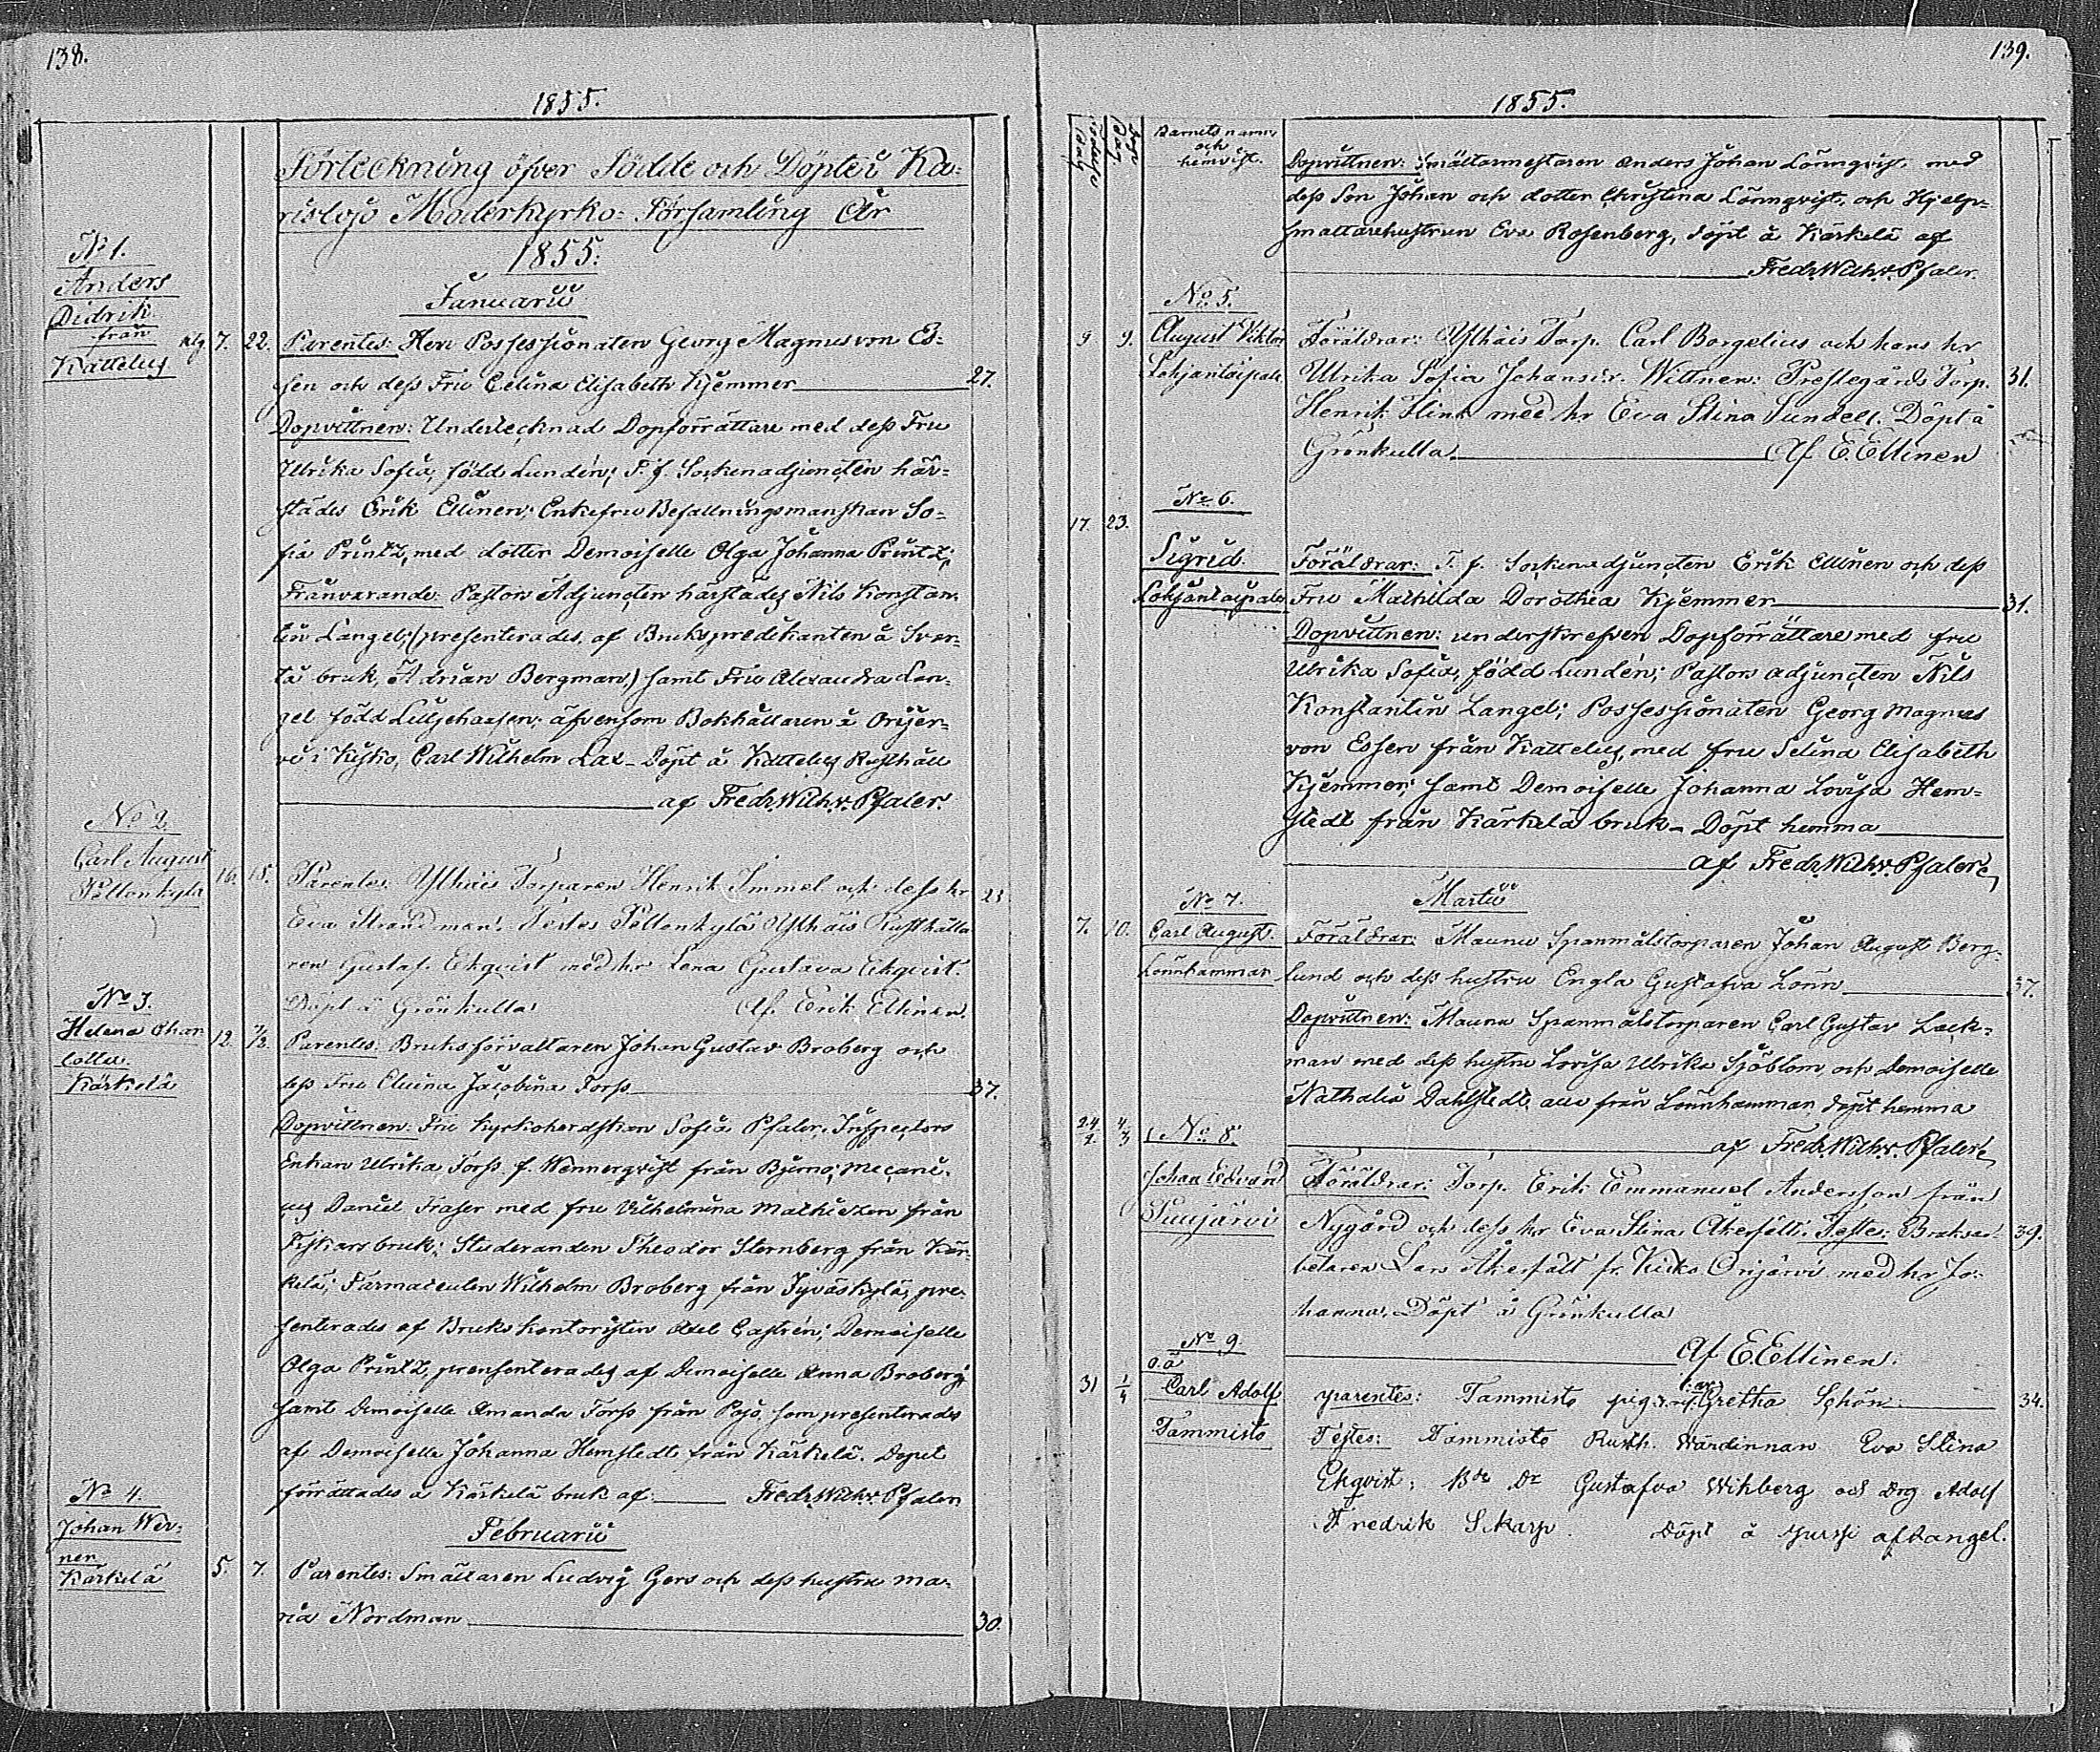 138.
1855.
Förteckning öfver Födde och Döpte i Ka-
rislojo Moderkyrko-Församling År
1855.
Januarii
No 1.
Anders
Didrik
från
Kattelus
7. 22. Parentes: Herr Possessionaten Georg Magnus von Es-
sen och dess Fru Celina Elisabeth Kjemmer 27.
Dopvittnen: Undertecknad Dopförrättare med dess Fru
Ulrika Sofia, född Lundén; T. f. Sockenadjuncten här-
städes Erik Ellinen; Enkefru Befallningsmanskan So-
fia Printz, med dotter Demoiselle Olga Johanna Printz;
Frånvarande: Pastors Adjuncten härstädes Nils Konstan-
tin Langel; (presenterades af Brukspredikanten å Svar-
tå bruk, Adrian Bergman,) samt Fru Alexandra Lan-
gel född Lilljehaosen; äfvensom Bokhållaren å Orijer-
vi i Kisko, Carl Wilhelm Lax – Döpt å Kattelus Rusthåll
af Fredr. Wilh. v. Pfaler.
No 2.
Carl August
Pellonkylä
16. 18. Parentes: Ylhäis Torparen Henrik Immel och dess hr 23
Eva Strandman. Testes Pellonkylä Ylhäis Rusthålla-
ren Gustaf Ekqvist med hr Lena Gustava Ekqvist.
Döpt å Grönkulla Af. Erik Ellinen.
No 3.
Helena Char-
lotta.
Kärkelä
12. 7/2. Parentes: Bruksförvaltaren Johan Gustav Broberg och
dess Fru Elvina Jacobina Forss 37.
Dopvittnen: Fru Kyrkoherdskan Sofia Pfaler, Inspectors
Enkan Ulrika Forss f. Wennerqvist från Bjerno; Mecani-
cus Daniel Fraser med fru Vilhelmina Mathiesen från
Fiskars bruk; Studeranden Theodor Sternberg från Kär-
kelä; Farmaceuten Wilhelm Broberg från Jyväskylä, pre-
senterades af Brukskontoristen Axel Castrén; Demoiselle
Olga Printz, prensenterades af Demoiselle Anna Broberg;
samt Demoiselle Amanda Forss från Pojo, som presenterades
af Demoiselle Johanna Hemstedt från Kärkelä. Dopet
förrättades å Kärkelä bruk af. Fredr. Wilh. v. Pfaler.
Februarii
No 4.
Johan Wer-
ner
Kärkelä
5. 7. Parentes: Smältaren Ludvig Gers och dess hustru Ma-
ria Nordman 30.
139.
1855.
Födelse Dag
Dop Dag
Barnets namn
och
hemvist.
Dopvittnen: Smältarmestaren Anders Johan Lönnqvist, med
dess Son Johan och dotter Christina Lönnqvist, och Hjelp-
smältarehustrun Eva Rosenberg, döpt å Kärkelä af
Fredr. Wilh. v. Pfaler
No. 5.
August Viktor
Lohjantaipale
9 9. Föräldrar: Ylhäis Torp. Carl Borgelius och hans hr
Ulrika Sofia Johansdr. Wittnen: Prestegårds Torp. 31.
Henrik Flink med hr Eva Stina Sundell. Döpt å
Grönkulla Af E. Ellinen
No 6.
17. 23.
Sigrid.
Lohjantaipale
Föräldrar: T. f. Sockenadjuncten Erik Ellinen och dess
Fru Mathilda Dorothea Kjemmer 31.
Dopvittnen: underskrefven Dopförrättare med fru
Ulrika Sofia, född Lundén; Pastors adjuncten Nils
Konstantin Langel; Possessionaten Georg Magnus
von Essen från Kattelus, med fru Selina Elisabeth
Kjemmer; samt Demoiselle Johanna Lovisa Hem-
stedt från Kärkelä bruk – Döpt hemma
af Fredr. Wilh. v. Pfaler
Martii
No 7.
Carl August.
Lönnhamman
7. 10. Föräldrar: Maunu Spanmålstorparen Johan August Berg-
lund och dess hustru Engla Gustafva Lönn 37.
Dopvittnen: Maunu Spanmålstorparen Carl Gustav Lack-
man med dess hustru Lovisa Ulrika Sjöblom och Demoiselle
Nathalia Dahlstedt, alla från Lönnhamman döpt hemma
af Fredr. Wilh. v. Pfaler
24/2 4/3 No 8.
Johan Edvard
Suujärvi
Föräldrar: Torp. Erik Emmanuel Andersson från
Nygård och dess hr Eva Stina Åkerfält. Teste: Bruksar- 39.
betaren Lars Åkerfält fr. Kisko Orijärvi med hr Jo-
hanna. Döpt å Grönkulla
Af E. Ellinen.
No 9.
o.ä
Carl Adolf
Tammisto
31 1/4 parentes: Tammisto pig. Gretha Schön 34.
Testes: Tammisto Rusth. Wärdinnan Eva Stina
Ekqvist; Gustafva Wikberg och drg Adolf
Fredrik Skarp. Döpt å af Langel.